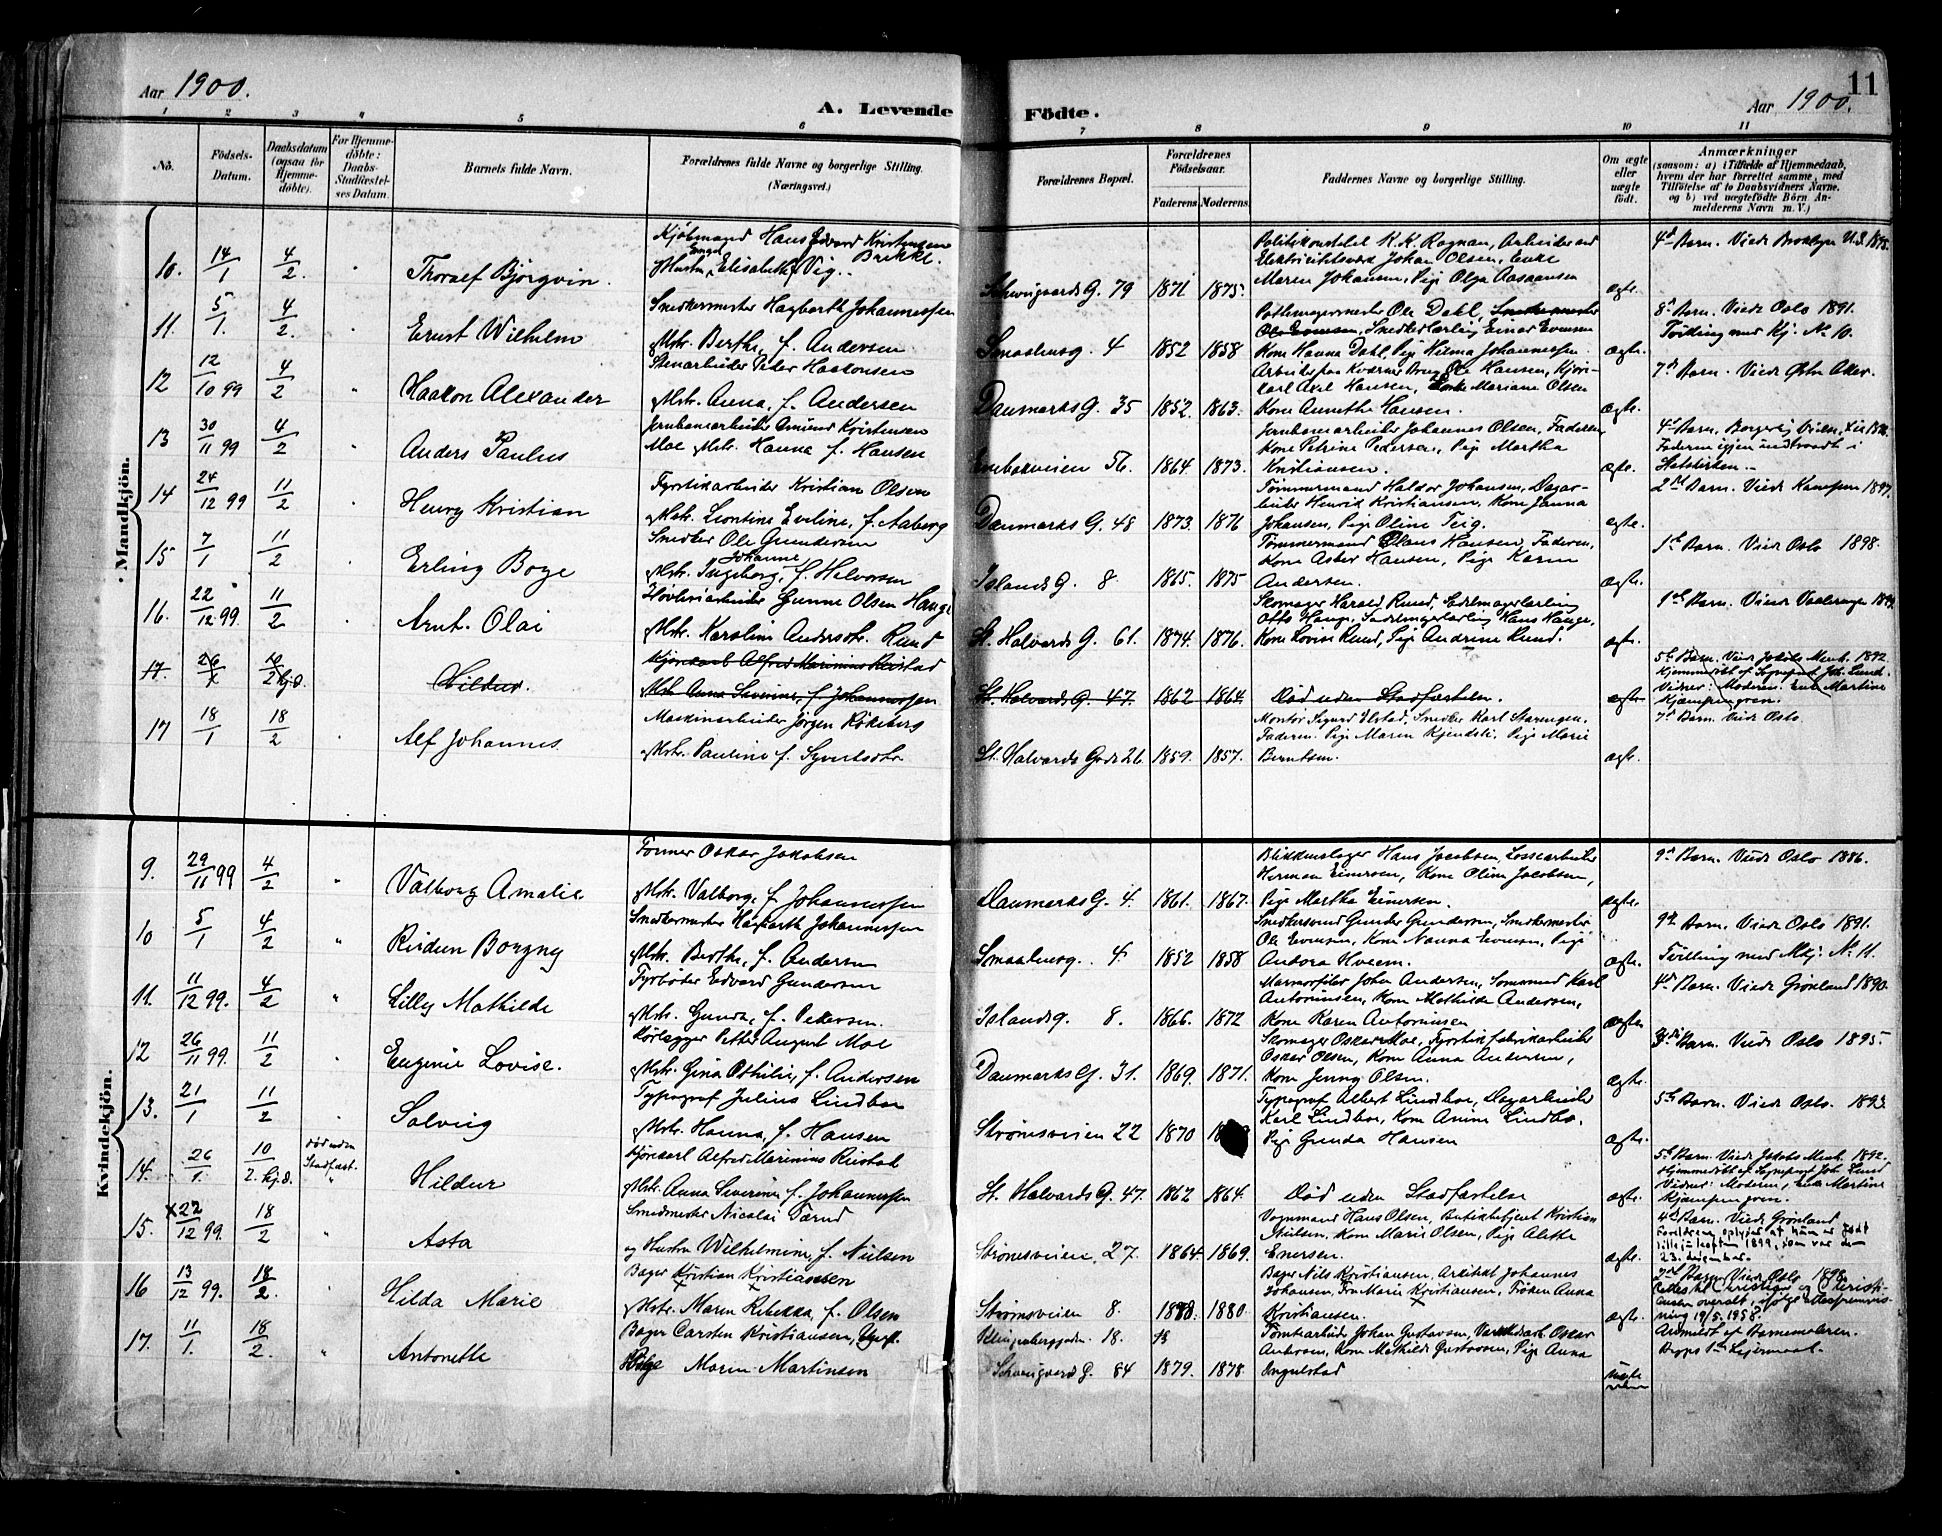 Aar 1900.
A. Levende Fødte.
Aar 1900.
11
1 2 3 4 5 6 7 8 9 10 11
No. Fødsels-Datum. Daabsdatum (ogsaa for Hjemmedøbte). For Hjemmedøbte: Daabs-Stadfæstelses Datum. Barnets fulde Navn. Forældrenes fulde Navne og borgerlige Stilling. (Næringsvei.) Forældrenes Bopæl. Forældrenes Fødselsaar. Faderens Moderens Faddernes Navne og borgerlige Stilling. Om ægte eller uægte født. Anmærkninger (saasom: a) i Tilfælde af Hjemmedaab, hvem der har forrettet samme, med Tilføielse af to Daabsvidners Navne. og b) ved uægtefødte Børn Anmelderens Navn m. V.)
Mandkjøn.
10. 14/1 4/2 Thoralf Bjørgvin.
Kjøbmand Hans Edvard Kristensen Brekke.
Hustru Elisabeth f. Vig.
Schweigaards G. 79 1871 1875.
Politikonstabel K. K. Rognan, Arbeider ved
Elektricitetsværk Johan Olsen, Enke
Maren Johansen, Pige Olga Aasaansen
ægte.
4de Barn. Viede Brooklyn U.S. 1895.
11. 5/1. 4/2 Ernst Wilhelm
Snedkermester Hagbarth Johannessen
Hstr. Berthe, f. Andersen
Smaalensg. 4 1852 1858
Pottemagermester Ole Dahl, Snedkermester
Ole Evensen, Snedkerlærling Einar Evensen
Kone Hanna Dahl, Pige Hilma Johannessen.
ægte.
8de Barn. Viede Oslo 1891.
Tvilling med Kj. No 10.
12 12/10 99 4/2 Haakon Alexander
Stenarbeider Peder Haakonsen
Hstr. Anna, f. Andersen
Danmarks G. 35 1852. 1863.
Arbeider paa Kværner Brug Ole Hansen, Kjøre-
karl Axel Hansen, Enke Mariane Olsen
Kone Annethe Hansen.
ægte.
7de Barn. Viede Østre Aker.
13 30/11 99 4/2 Anders Paulus
Jernbanearbeider Amund Kristensen
Moe Hstr. Hanna f. Hansen
Enebakveien 56. 1864. 1873.
Jernbanearbeider Johannes Olsen, Faderen
Kone Petrine Pedersen, Pige Martha
Kristiansen.
ægte.
Faderen igjen indtraadt i
Statskirken.
14 24/12 99 11/2 Henry Kristian
Fyrstikarbeider Kristian Olsen
Hstr. Leontine Eveline, f. Aaberg
Danmarks G. 48 1873. 1876
Tømmermand Haldor Johansen, Dagar-
beider Henrik Kristiansen, Kone Janna
Johansen, Pige Oline Teig.
ægte.
2det Barn. Viede Kampen 1897.
15 7/1 11/2 Erling Boye
Snedker Ole Gundersen
Hstr. Ingeborg Johanne, f. Halvorsen
Islands G. 8 1865. 1875
Tømmermand Claus Hansen, Faderen,
Kone Asber Hansen, Pige Karen
Andersen.
ægte.
1ste Barn. Viede Oslo 1898.
16. 22/12 99. 11/2 Arnt Olai
Høvleriarbeider Gunne Olsen Hauge
Hstr. Karoline Andersdtr. Rund
St. Halvards G. 61. 1874. 1876.
Skomager Harald Rund, Sadelmagerlærling
Otto Hauge, Sadelmagerlærling Hans Hauge,
Kone Lovise Rund, Pige Andrine Rund.
ægte.
1ste Barn. Viede Vaalerengen 1899.
17. 26/1 10/2 Kj.D. Hildur.
Kjørekarl Alfred Marinius Reistad
Hstr. Anna Severine, f. Johannessen
St. Halvards G. 47. 1862 1864.
Død uden Stadfæstelse.
ægte
5te Barn. Viede Jakobs Menh. 1892.
Hjemmedøbt af Sogneprest Joh. Lund
Vidner: Moderen. Enke Martine
Kjempengren.
17 18/1 18/2 Alf Johannes
Maskinarbeider Jørgen Røkeberg
Hstr. Pauline f. Syvertsdtr.
St. Halvards Gade 26. 1859. 1857.
Montør Sigurd Ulstad, Snedker Karl Starengen,
Faderen. Pige Maren Kjendsli, Pige Marie
Berntsen.
ægte.
7de Barn. Viede Oslo.
Kvindekjøn.
9. 29/11 99 4/2 Valborg Amalie
Former Oskar Jakobsen
Hstr. Valborg, f. Johannessen
Danmarks G. 4. 1861. 1867.
Blikkenslager Hans Jacobsen, Lossearbeider
Herman Einersen, Kone Oline Jacobsen,
Pige Martha Einersen.
ægte.
9de Barn. Viede Oslo 1886.
10 5/1 4/2 Reidun Borgny
Snedkermester Hagbarth Johannessen
Hstr. Berthe, f. Andersen
Smaalensg. 4. 1852 1858
Snedkersvend Gunder Gundersen, Snedkermester
Ole Evensen, Kone Nanna Evensen, Pige
Andora Hveem.
ægte.
9de Barn. Viede Oslo 1891.
Tvilling med Mkj. No 11.
11. 11/12 99. 4/2 Lilly Mathilde
Fyrbøder Edvard Gundersen
Hstr. Gunda, f. Pettersen.
Islandsg. 8. 1866. 1872
Marmorsliber John Andersen, Sømmand Karl
Antoninsen, Kone Mathilde Andersen,
Kone Karen Antoninsen
ægte.
4de Barn. Viede Grønland 1890.
12 26/11 99. 11/2 Eugenie Lovise.
Rørlægger Petter August Moe
Hstr. Gina Othilie, f. Andersen
Danmarks G. 31. 1869. 1871.
Skomager Oskar Moe, Fyrstikfabrikarbeider
Oskar Olsen, Kone Anna Andersen,
Kone Jenny Olsen.
ægte.
3die Barn. Viede Oslo 1895.
13. 21/1 11/2 Solveig
Typograf Julius Lindboe
Hstr. Hanna, f. Hansen
Strømsveien 22 1870
Typograf Albert Lindboe, Dagarbeider
Karl Lindboe, Kone Anine Lindbo.
Pige Gunda Hansen
ægte.
5te Barn. Viede Oslo. 1893.
14. 26/1. 10/2. Kj.D. død uden Stadfæst. Hildur
Kjørekarl Alfred Marinius Reistad
Hstr. Anna Severine f. Johannessen
St. Halvards G. 47. 1862 1864.
Død uden Stadfæstelse
ægte.
5te Barn. Viede Jakobs Menh. 1892.
Hjemmedøbt af Sogneprest Joh. Lund
Vidner: Moderen, Enke Martine
Kjempengren.
15. x 22/12 99. 18/2 Asta
Smedmester Nicolai Tærud
og Hustru Wilhelmine, f. Nielsen
Strømsveien, 27. 1864. 1869.
Vognmand Hans Olsen, Butikbetjent Kristian
Nielsen, Kone Marie Olsen, Pige Alethe
Enersen.
ægte.
4de Barn. Viede Grønland
Foreldrene oplyser at hun er født
lille julaften 1899, som var den
23. desember.
16 13/12 99. 18/2. Hilda Marie
Bager Kristian Kristiansen
Hstr. Maren Rebekka, f. Olsen
Strømsveien 8. 1878. 1880.
Bager Nils Kristiansen, Arkitekt Johannes
Johansen, Fru Marie Kristiansen, Frøken Anna
Kristiansen.
ægte.
2det Barn. Viede Oslo 1898.
Rettes til Christian og Christi-
ansen overalt, ifølge
ning 19/5 1958.
17. 11/1. 18/2. Antonette
Bager Carsten Kristiansen, Ungk.
Pige Maren Martinsen
Klingenberggaden 18.
Schweigaards G. 84 1879. 1878.
Tomtearbeider Johan Gustavsen, Værkstedsarb. Oskar
Andersen, Kone Mathilde Gustavsen, Pige Anna
Ingulstad
uægte
Anmeldt af Barnemoderen.
Begges 1ste Leiermaal.